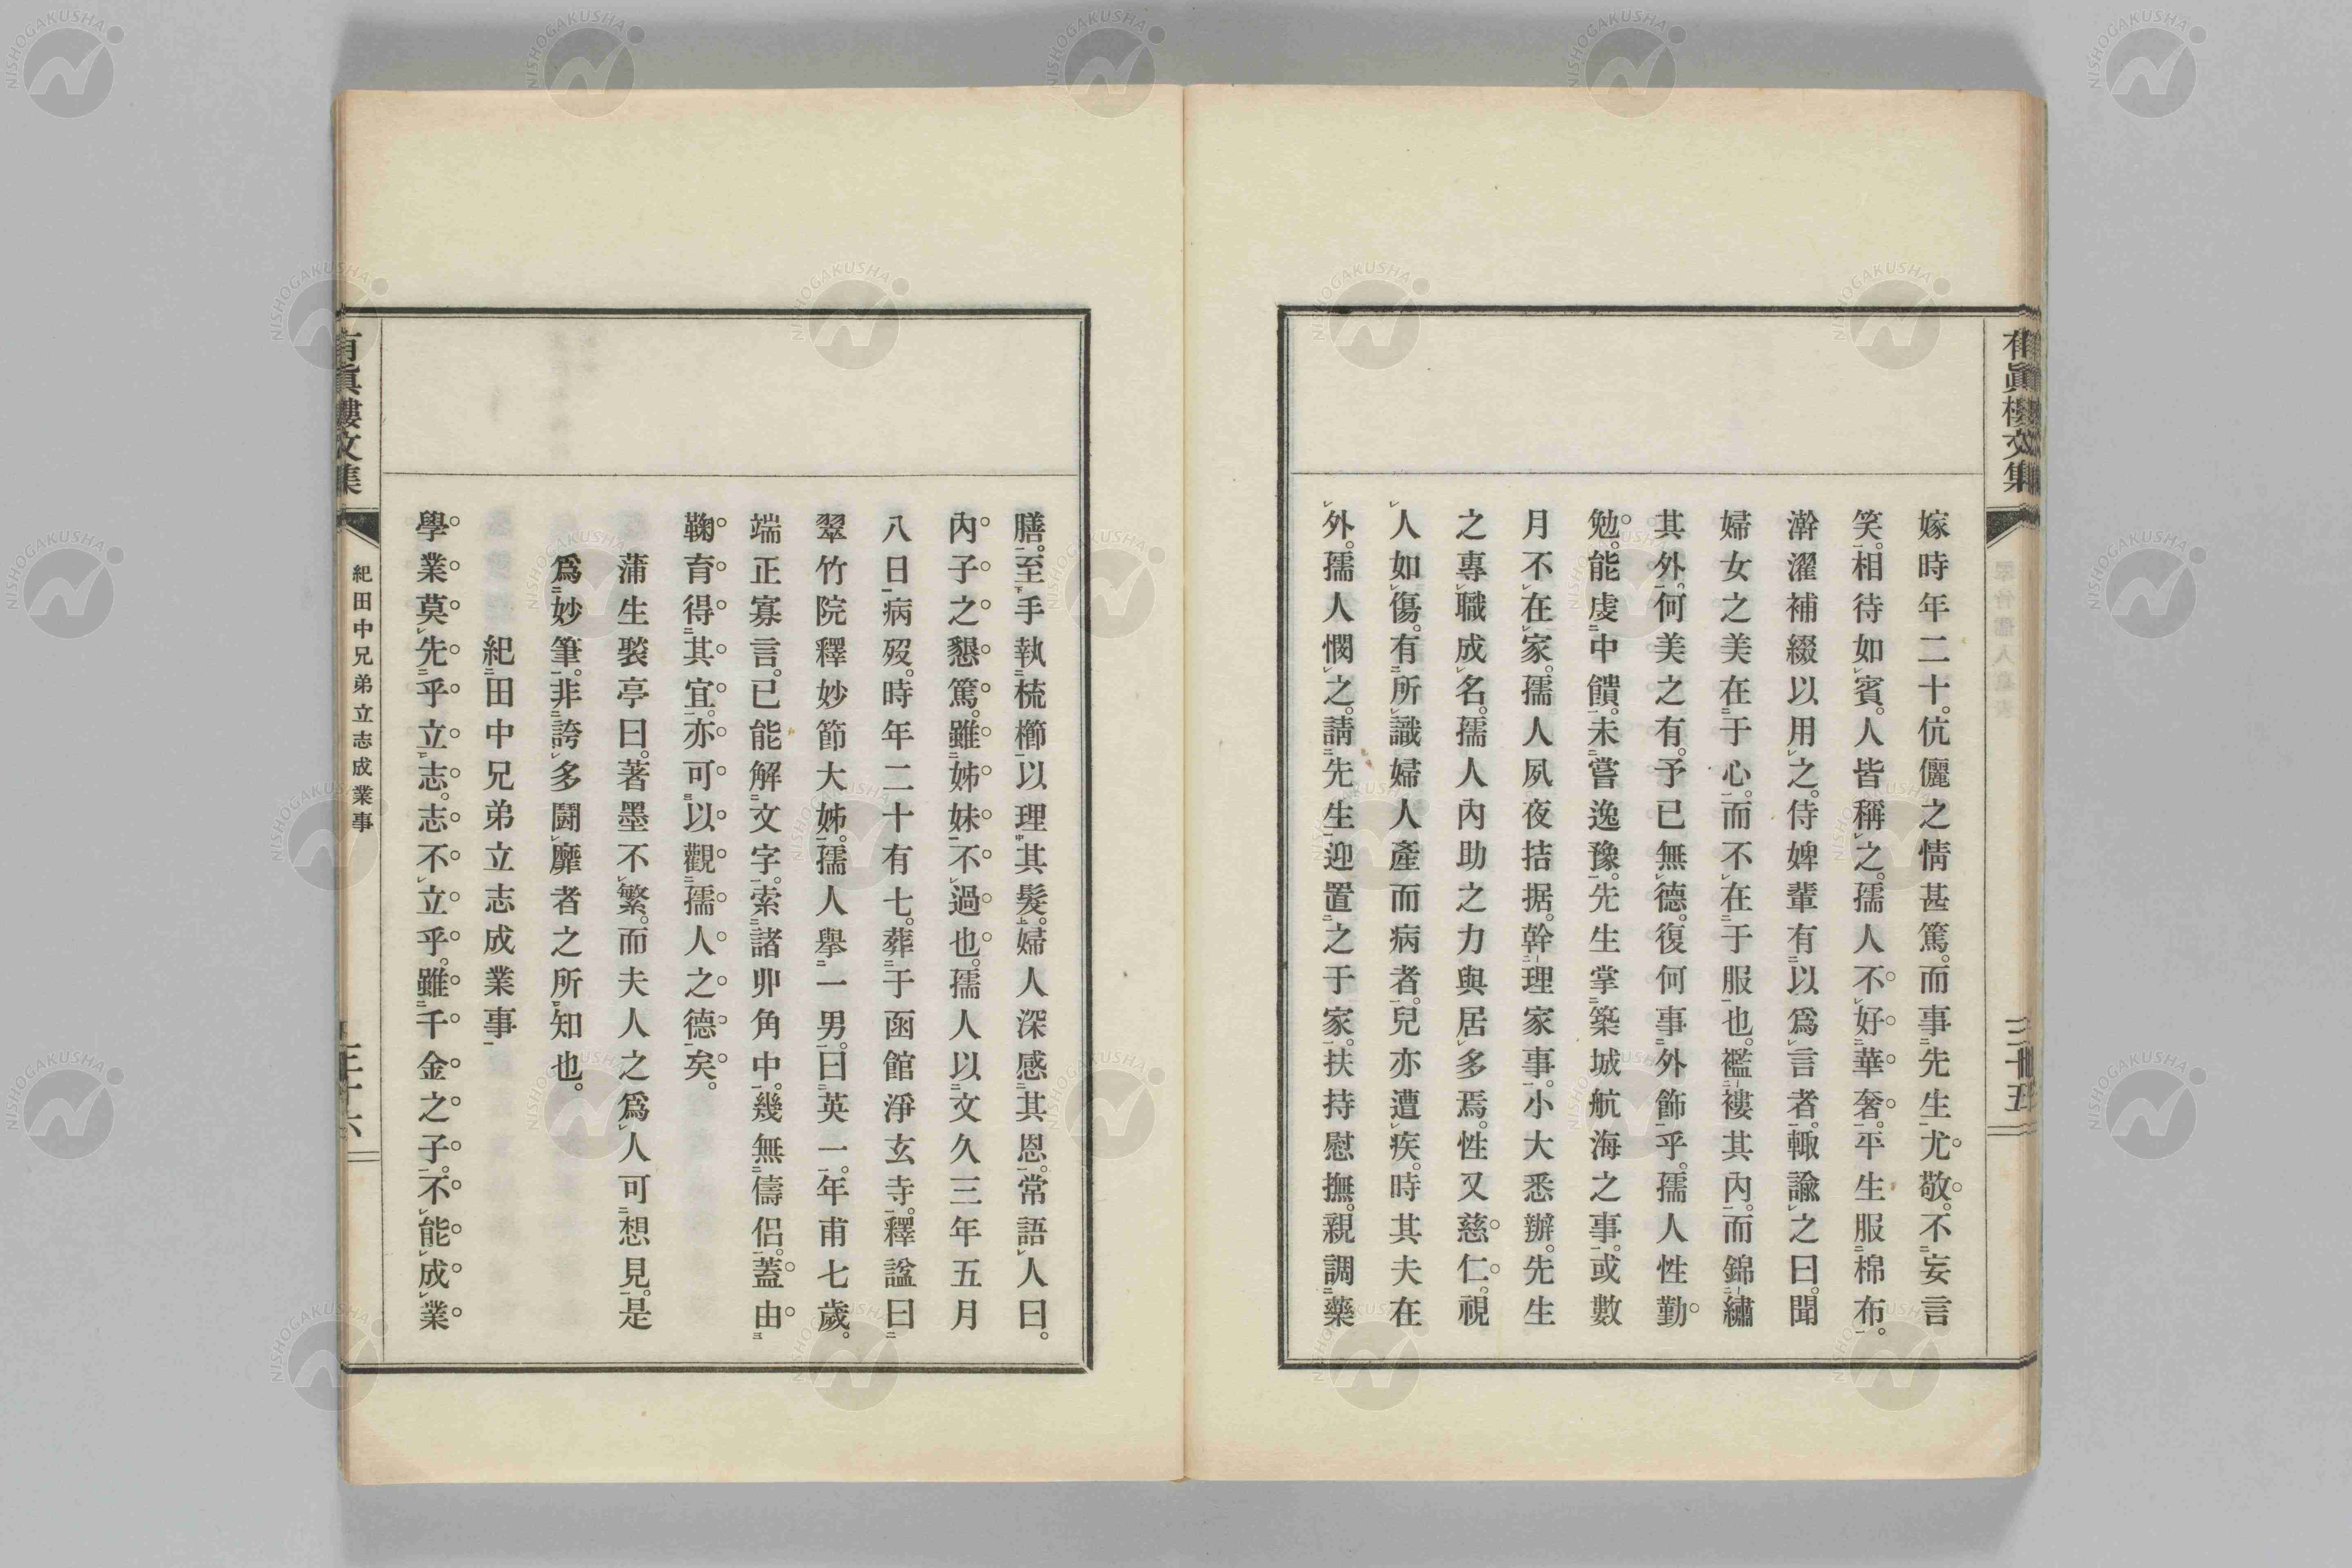 有眞樓文集
三十五
嫁時年二十。伉儷之情甚篤。而事先生尤敬。不妄言
笑。相待如賓。人皆稱之。孺人不好華奢。平生服棉布。
澣濯補綴以用之。侍婢輩有以爲言者。輙諭之曰。聞
婦女之美在于心。而不在于服也。襤褸其內。而錦繡
其外。何美之有。予已無德。復何事外飾乎。孺人性勤
勉。能虔中饋。未嘗逸豫。先生掌築城航海之事。或數
月不在家。孺人夙夜拮据。幹理家事。小大悉辦。先生
之專職成名。孺人內助之力與居多焉。性又慈仁。視
人如傷。有所識婦人產而病者。兒亦遭疾。時其夫在
外。孺人憫之。請先生迎置之于家。扶持慰撫。親調藥
膳。至手執梳櫛以理其髮。婦人深感其恩。常語人曰。
內子之懇篤。雖姊妹不過也。孺人以文久三年五月
八日病歿。時年二十有七。葬于函館淨玄寺。釋謚曰
翠竹院釋妙節大姊。孺人擧一男。曰英一。年甫七歲。
端正寡言。已能解文字。索諸丱角中。幾無儔侶。蓋由
鞠育得其宜。亦可以觀孺人之德矣。
蒲生褧亭曰。著墨不繁。而夫人之爲人可想見。是
爲妙筆。非誇多鬪靡者之所知也。
紀田中兄弟立志成業事
學業莫先乎立志。志不立乎。雖千金之子。不能成業
有眞樓文集
紀田中兄弟立志成業事
三十六
NISHOGAKUSHA